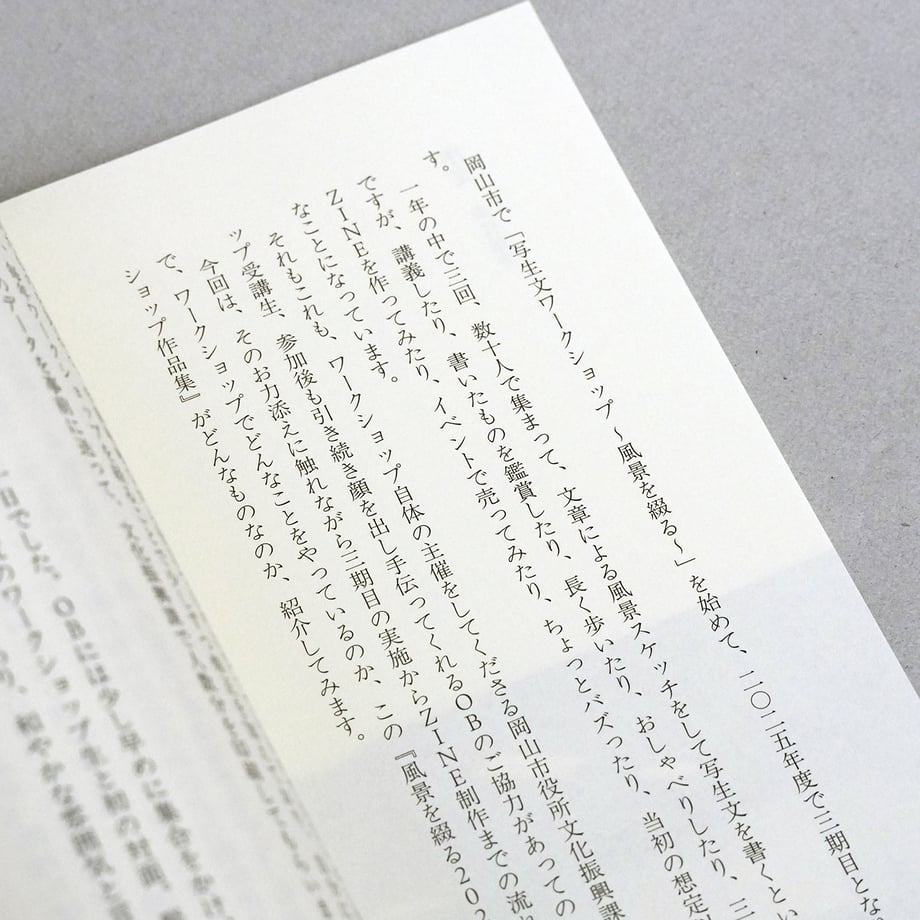 岡山市で「写生文ワークショップ～風景を綴る～」を始めて、二〇二五年度で三期目とな
す。
一年の中で三回、数十人で集まって、文章による風景スケッチをして写生文を書くとい
ですが、講義したり、書いたものを鑑賞したり、長く歩いたり、おしゃべりしたり、三
ZINEを作ってみたり、イベントで売ってみたり、ちょっとバズったり、当初の想定
なことになっています。
それもこれも、ワークショップ自体の主催をしてくださる岡山市役所文化振興課
ップ受講生、参加後も引き続き顔を出し手伝ってくれるOBのご協力があっての
今回は、そのお力添えに触れながら三期目の実施からZINE制作までの流れ
で、ワークショップでどんなことをやっているのか、この『風景を綴る202
ショップ作品集』がどんなものなのか、紹介してみます。
日でした。OBには少し早めに集合をか
のワークショップ生と初の対面、
り、和やかな雰囲気と